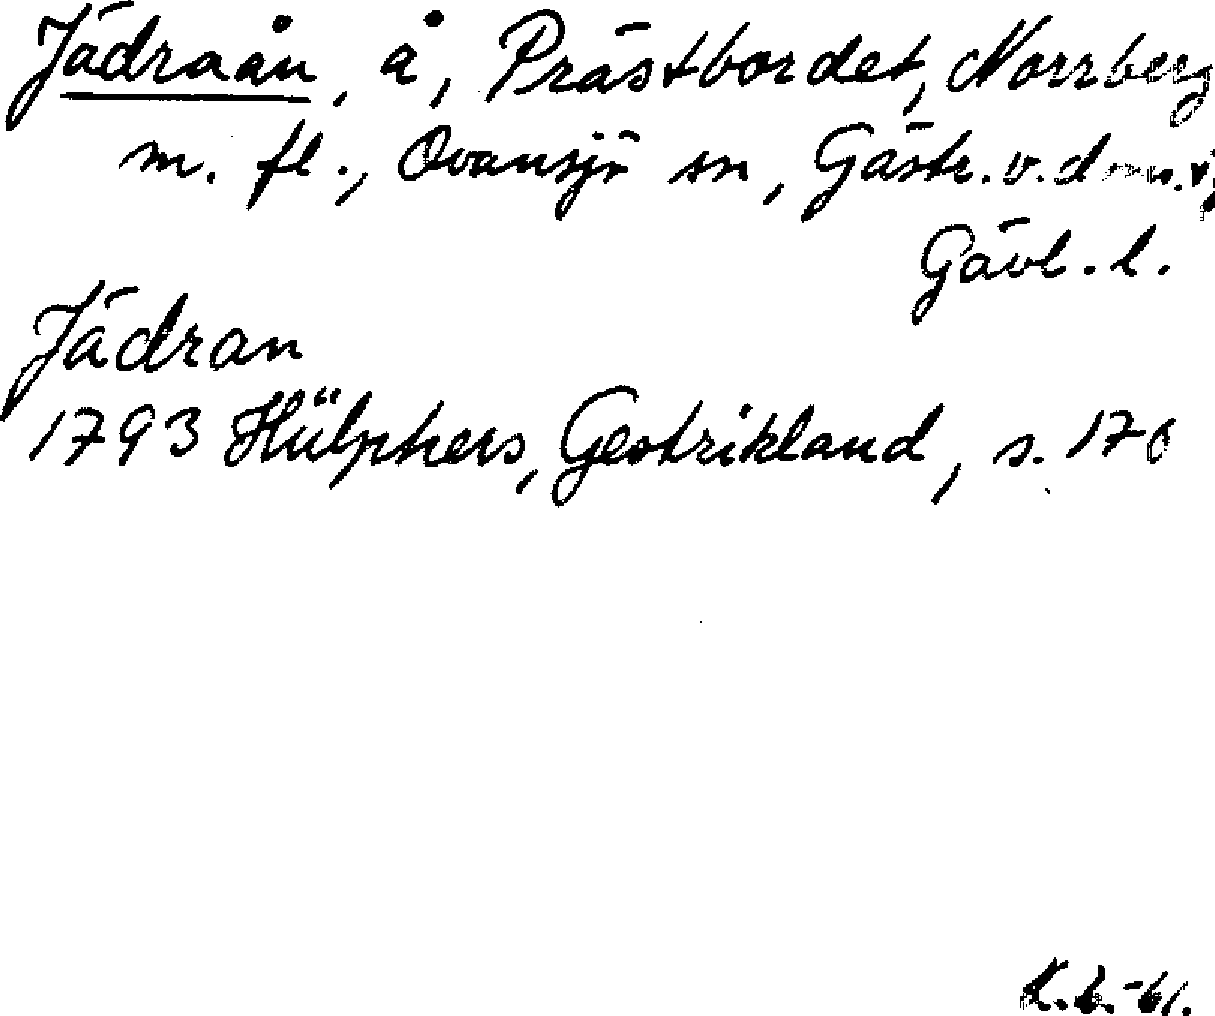 Jädraån, å, Prästbordet, Norrberg
m. fl., Ovansjö sn, Gästr. v. doms.
Gävl. l.
Jädran
1793 Hülphers, Gestrikland, s. 170
K.b.-61.